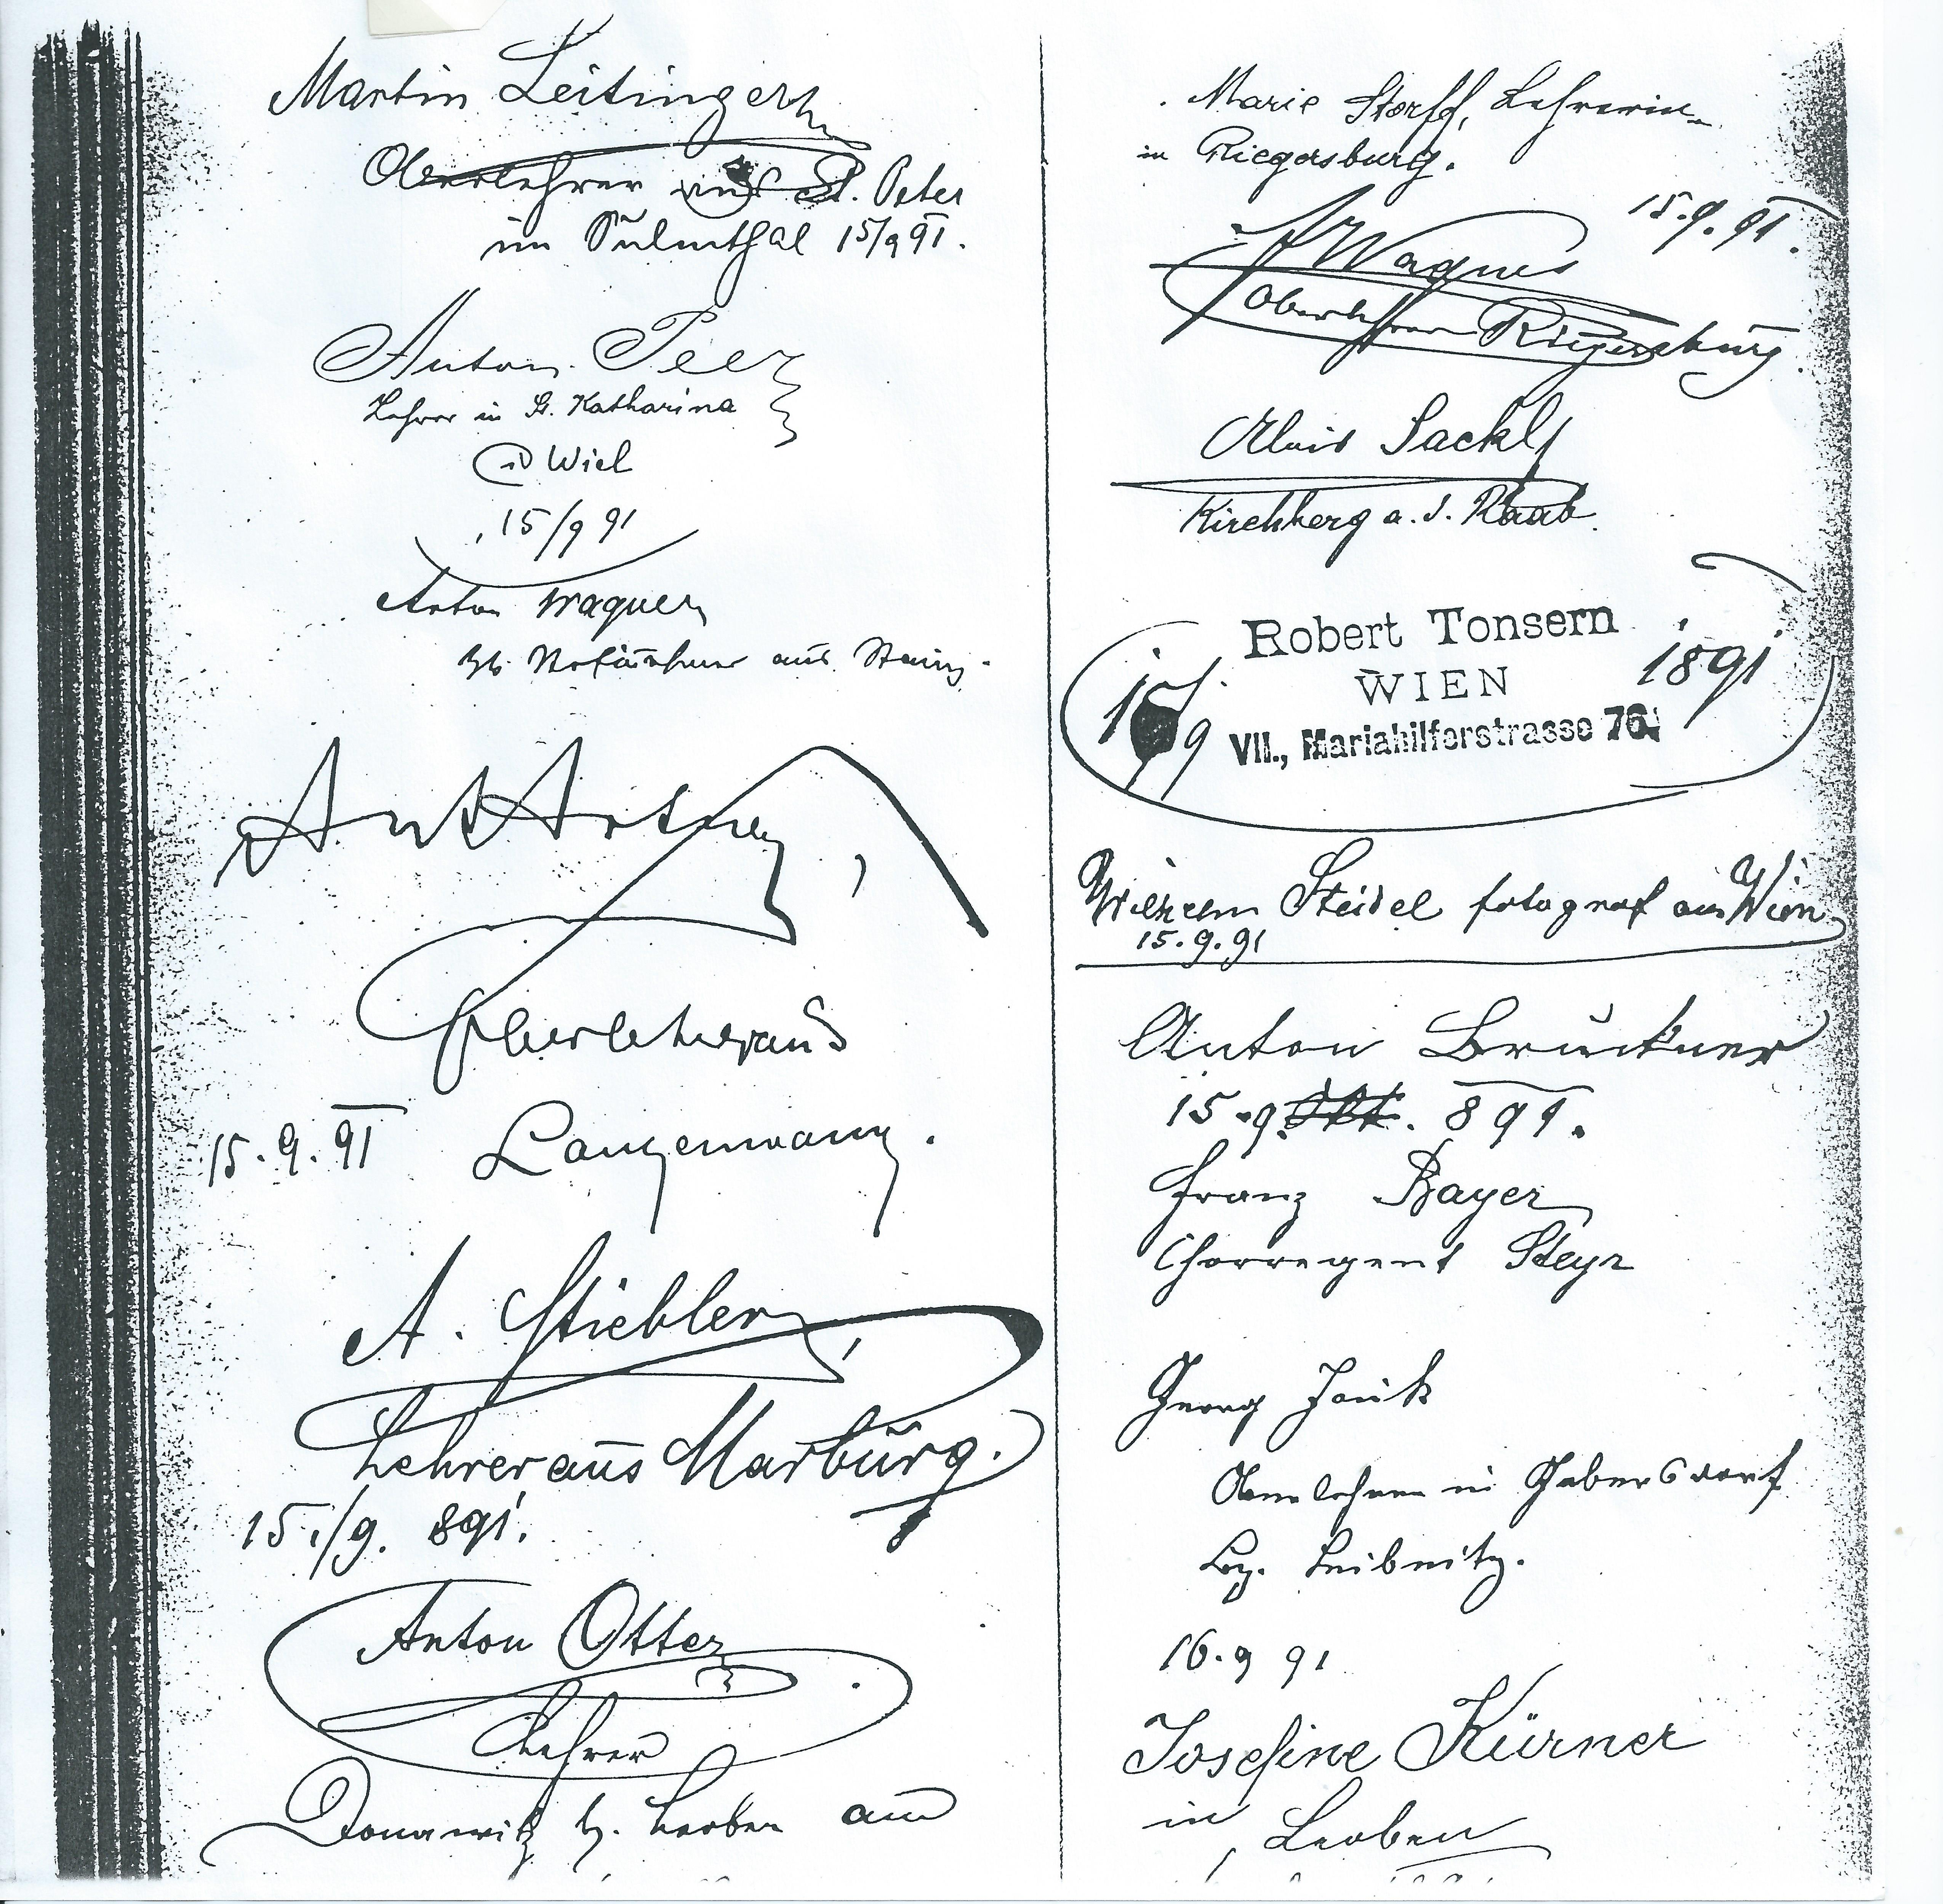 Martin Leitinger
Oberlehrer aus St. Peter
im Sulmthal 15/9 91.
Anton Peer
Lehrer in St. Katharina
Wiel
15/9 91
Anton Wagner
aus Stainz.
Ant Artner,
Oberlehrer aus
15.9.91 Langenwang.
A. Stiebler,
Lehrer aus Marburg.
15./9. 891.
Anton Otter
Lehrer
Donawitz b. Leoben am
Marie Storff, Lehrerin
in Riegersburg.
15.9.91.
Wagner
Oberlehrer Riegersburg
Alois Sackl
Kirchberg a. d. Raab.
Robert Tonsern
WIEN
VII., Mariahilferstrasse 76.
15/9 1891
Wilhelm Steidel fotograf aus Wien
15.9.91
Anton Bruckner
15.9. Okt. 891.
Franz Bayer
Chorregent Steyr
Georg Janik
Oberlehrer in Gabersdorf
Bez. Leibnitz.
16.9 91
Josefine Kürner
in Leoben